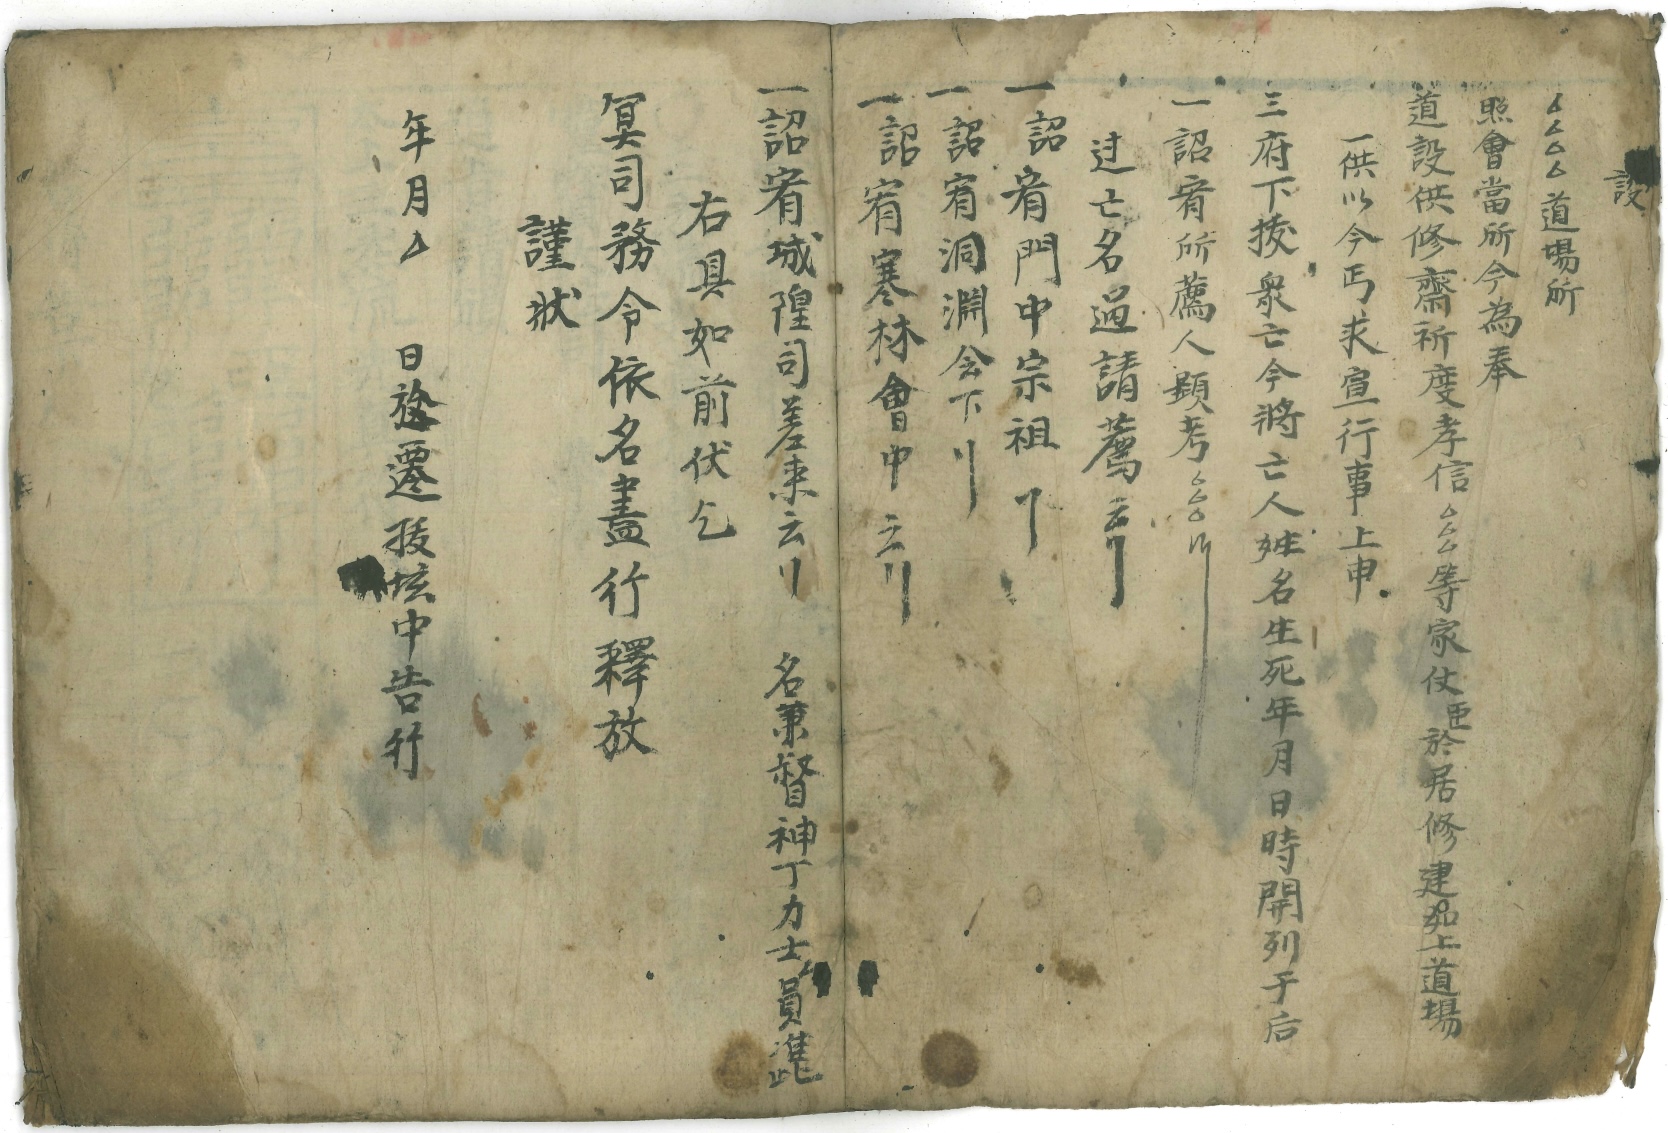 設
厶厶厶厶道場所
照會當所今為奉
道設供修齋祈度孝信厶厶厶等家仗臣於居修建如上道場
一供以今丐求宣行事上申
三府下拔衆亡今將亡人姓名生死年月日時開列于后
一詔宥所薦人顯考厶厶厶
过亡名過請薦云
一詔宥門中宗祖
一詔宥洞淵会下
一詔宥寒林會中云
一詔宥城隍司差来云 名兼督神丁力士員准此
右具如前伏乞
冥司務令依名盡行釋放
謹狀
年月厶 日 遷拔垓中告行